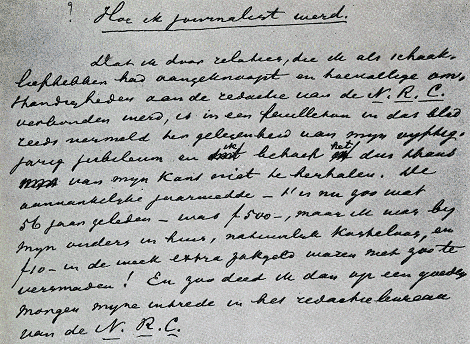 ? Hoe ik journalist werd.
Dat ik door relaties, die ik als schaak-
liefhebber had aangeknoopt en toevallige om-
standigheden aan de redactie van de N. R. C.
verbonden werd, is in een feuilleton in dat blad
reeds vermeld ter gelegenheid van mijn vijftig-
jarig jubileum en ik behoef het dus thans
van mijn kant niet te herhalen. De
aanvankelijke jaarwedde – 't is nu zoo wat
56 jaar geleden – was f 500–, maar ik was bij
mijn ouders in huis, natuurlijk kosteloos, en
f 10– in de week extra zakgeld waren niet zoo te
versmaden! En zoo deed ik dan op een goeden
morgen mijne intrede in het redactiebureau
van de N. R. C.